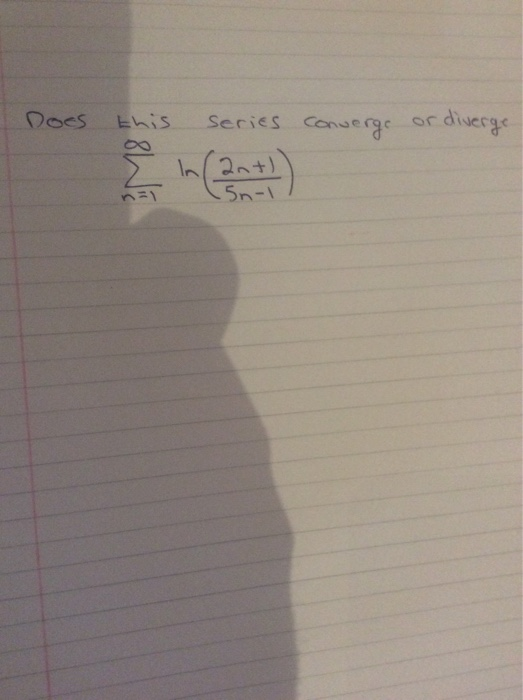 Does this series converge or diverge
∞
∑ ln(2n+1/5n-1)
n=1